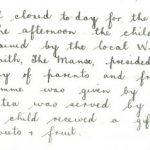 l closed to-day for the
he afternoon the child
ained by the local W.
mith, The Manse, presided
y of parents and fr
mme was given by
tea was served by
child received a gif
ts + fruit.